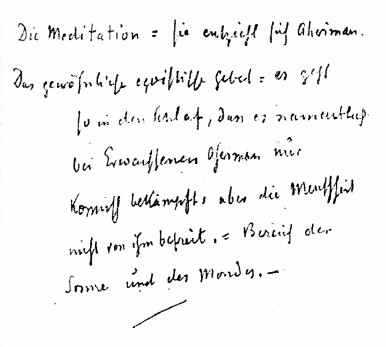 Die Meditation = sie entzieht sich Ahriman.
Das gewöhnliche egoistische Gebet = es geht
so in den Schlaf, dass es namentlich
bei Erwachsenen Ahriman nur
kosmisch bekämpft, aber die Menschheit
nicht von ihm befreit. = Bereich der
Sonne und des Mondes. —